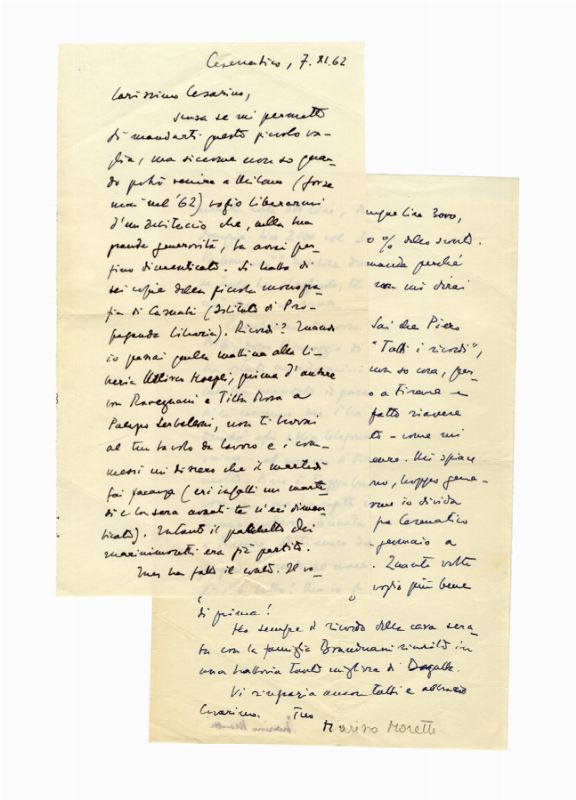 Cesenatico, 7.XI.62
Carissimo Cesarino,
scusa se mi permetto
di mandarti questo piccolo va-
glia, ma siccome non so quan-
do potrò venire a Milano (forse
mai nel '62) voglio liberarmi
d'un debituccio che, nella tua
grande generosità, tu avrai per-
fino dimenticato. Si tratta di
sei copie della piccola monogra-
fia di Casnati (Istituto di Pro-
paganda Libraria). Ricordi? Quando
io passai quella mattina alla li-
breria Hoepli, prima d'andare
con Ravegnani e Titta Rosa a
Palazzo Serbelloni, non ti trovai
al tuo tavolo da lavoro e i com-
messi mi dissero che il martedì
fai vacanza (eri infatti un marte-
dì e la sera avanti te n'eri dimen-
ticato). Intanto il pacchetto dei
marinimoretti era già partito.
ha fatto il
lire 3000,
% dello sconto.
perché
non mi dirai
Sai che Piero
"Tutti i ricordi",
non so cosa, per-
o a Firenze e
fatto riavere
to - come mi
Mi spiace
no, troppo gene-
io divida
Cesenatico
gennaio a
Quante volte
voglio più bene
di prima!
Ho sempre il ricordo della cara sera-
ta con la famiglia Branduani riuniti in
una trattoria tanto migliore di
Vi ringrazia ancora tutti e abbraccia
Cesarino. Tuo
Marino Moretti